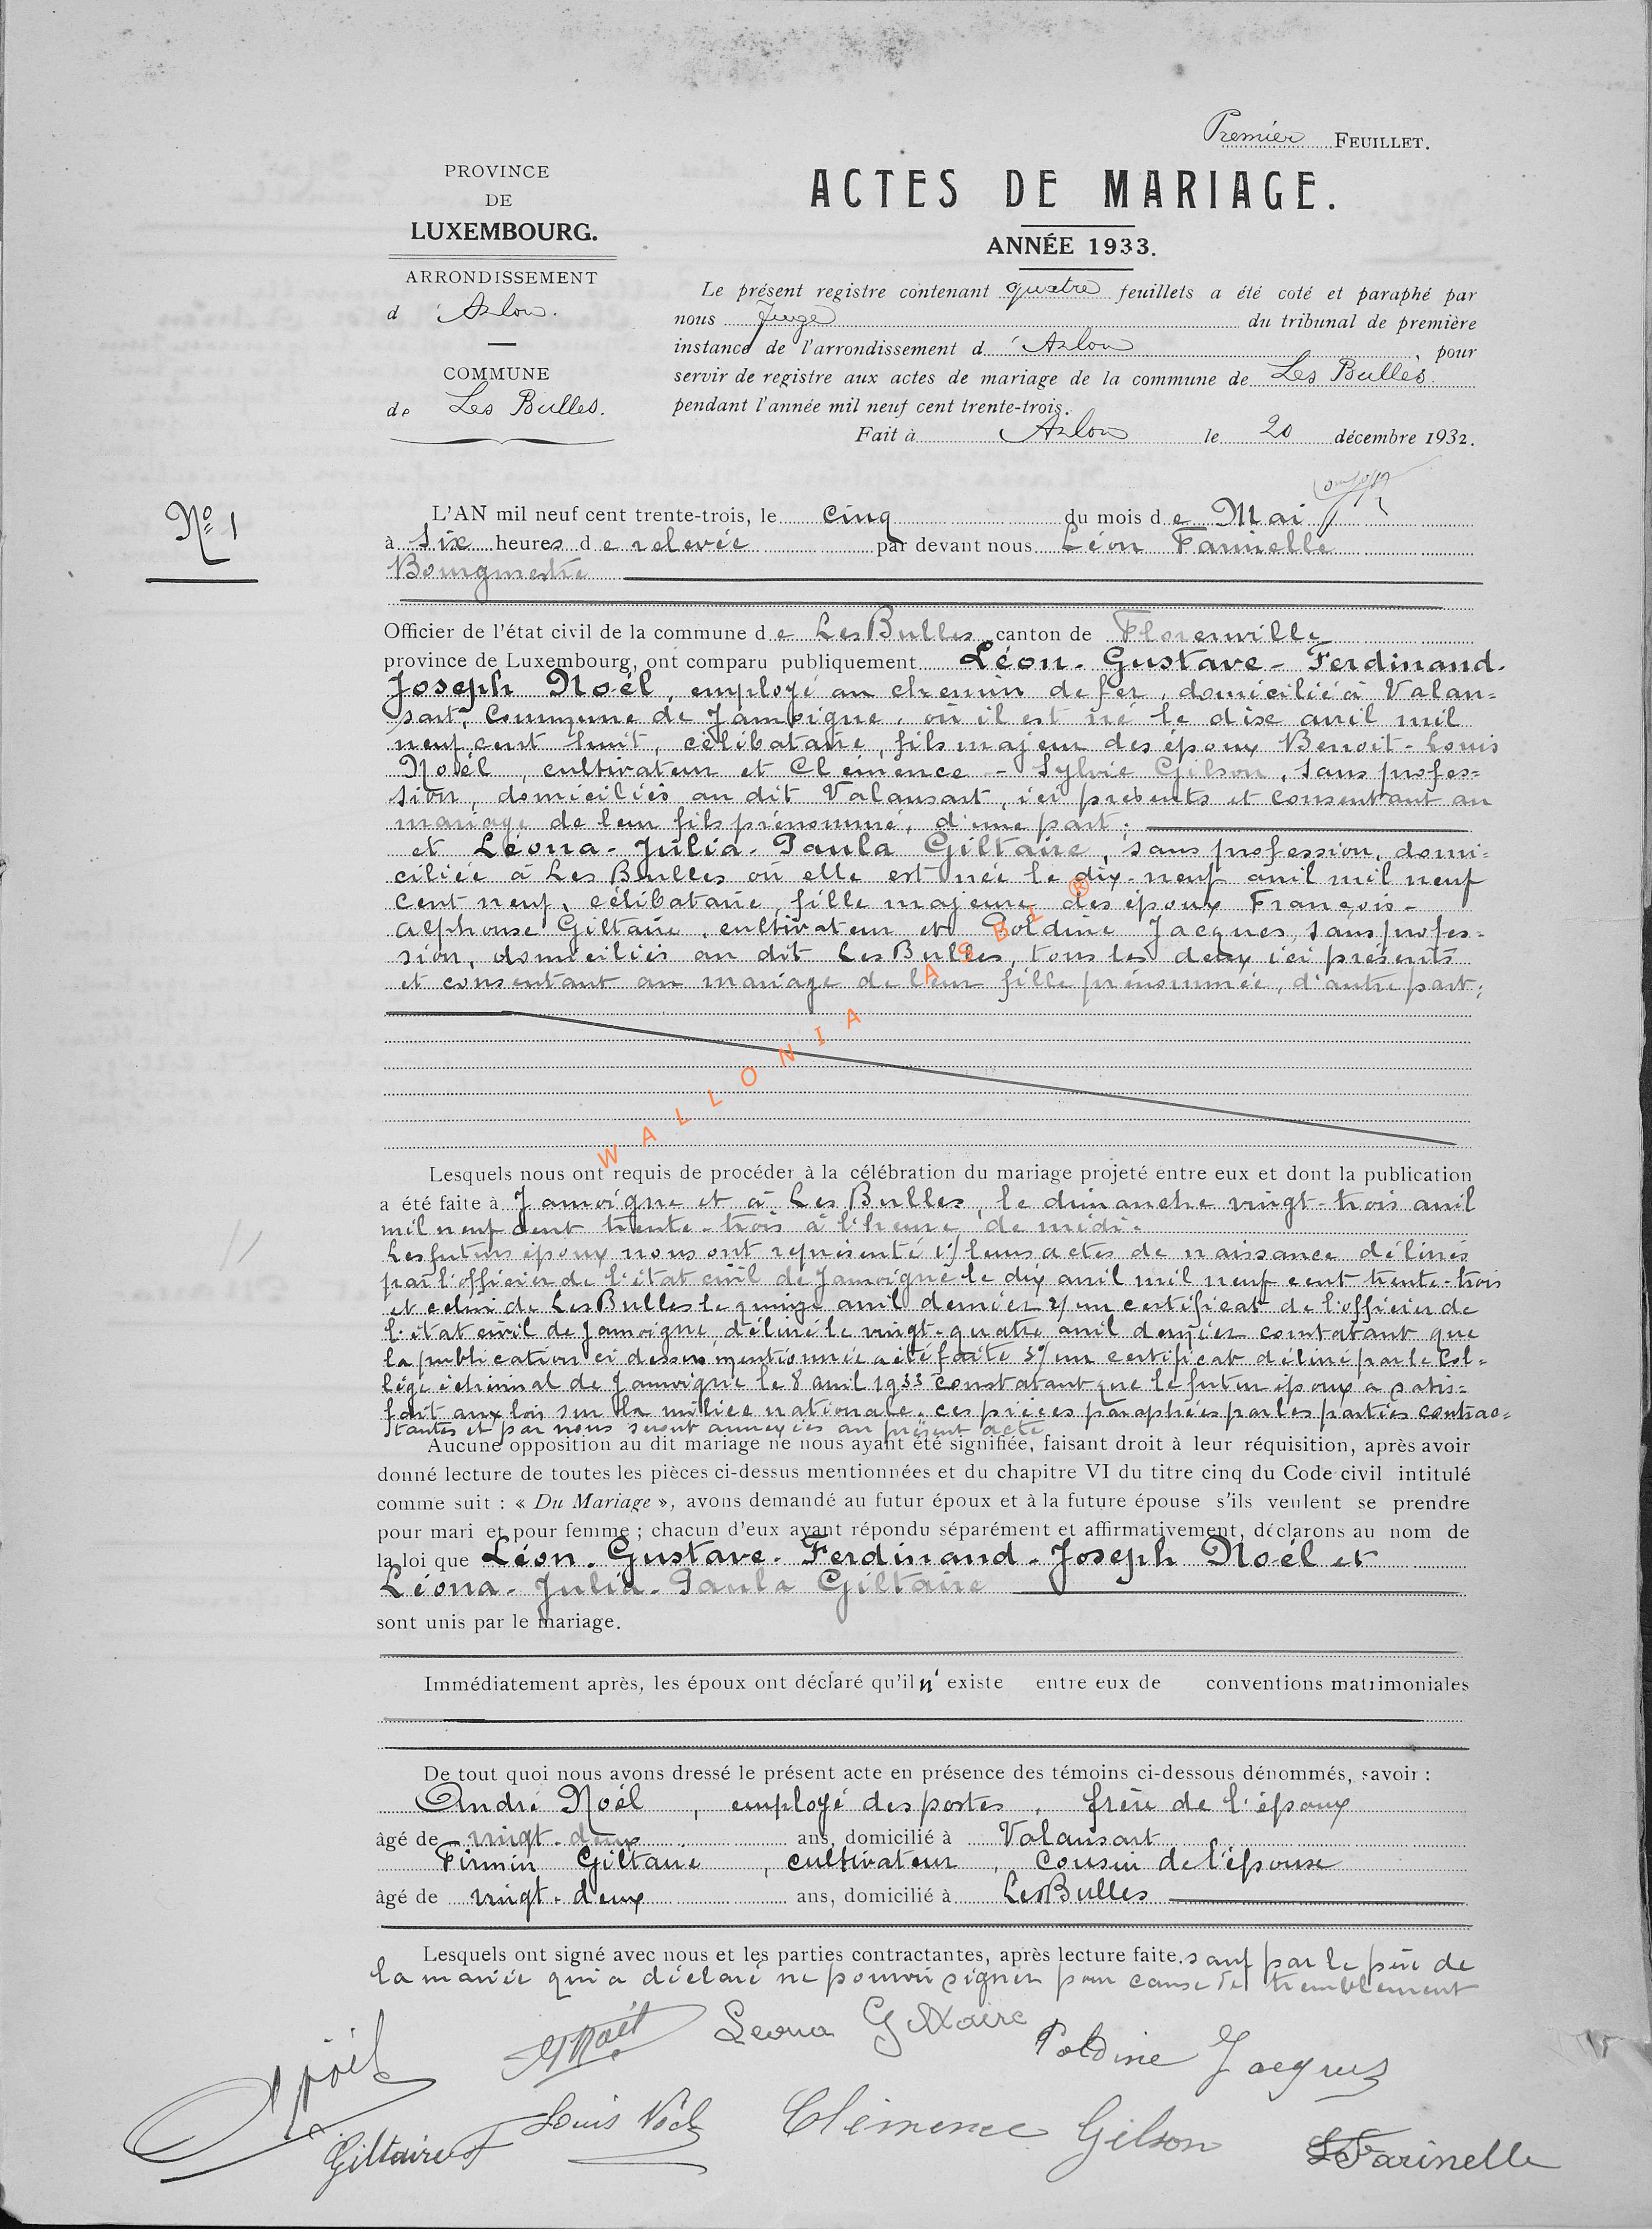 Premier FEUILLET.
PROVINCE
DE
LUXEMBOURG.
ARRONDISSEMENT
d'Arlon.
COMMUNE
de Les Bulles.
ACTES DE MARIAGE.
ANNÉE 1933.
Le présent registre contenant quatre feuillets a été coté et paraphé par
nous Juge du tribunal de première
instance de l'arrondissement d'Arlon pour
servir de registre aux actes de mariage de la commune de Les Bulles
pendant l'année mil neuf cent trente-trois.
Fait à Arlon le 20 décembre 1932.
No 1
L'AN mil neuf cent trente-trois, le cinq du mois de Mai
à six heures de relevée par devant nous Léon Farinelle
Bourgmestre
Officier de l'état civil de la commune de Les Bulles canton de Florenville
province de Luxembourg, ont comparu publiquement Léon-Gustave-Ferdinand-
Joseph Noël, employé au chemin de fer, domicilié à Valan=
sart, Commune de Jamoigne, où il est né le dix avril mil
neuf cent huit, célibataire, fils majeur des époux Benoit-Louis
Noël, cultivateur et Clémence-Sylvie Gilson, sans profes=
sion, domiciliés au dit Valansart, ici présents et consentant au
mariage de leur fils prénommé, d'une part;
et Léona-Julia-Paula Giltaire, sans profession, domi=
ciliée à Les Bulles où elle est née le dix-neuf avril mil neuf
cent neuf, célibataire, fille majeure des époux François-
Alphonse Giltaire, cultivateur et Poldine Jacques, sans profes=
sion, domiciliés au dit Les Bulles, tous les deux ici présents
et consentant au mariage de leur fille prénommée, d'autre part;
WALLONIA ASBL ®
Lesquels nous ont requis de procéder à la célébration du mariage projeté entre eux et dont la publication
a été faite à Jamoigne et à Les Bulles, le dimanche vingt-trois avril
mil neuf cent trente-trois à l'heure de midi.
Les futurs époux nous ont représenté 1°/ leurs actes de naissance délivrés
par l'officier de l'état civil de Jamoigne le dix avril mil neuf cent trente-trois
et celui de Les Bulles le quinze avril dernier 2/ un certificat de l'officier de
l'état civil de Jamoigne délivré le vingt-quatre avril dernier constatant que
la publication ci dessus mentionnée a été faite 3°/ un certificat délivré par le Col=
lège échevinal de Jamoigne le 8 avril 1933 constatant que le futur époux a satis=
fait aux lois sur la milice nationale. ces pièces paraphées par les parties contrac=
tantes et par nous seront annexées au présent acte
Aucune opposition au dit mariage ne nous ayant été signifiée, faisant droit à leur réquisition, après avoir
donné lecture de toutes les pièces ci-dessus mentionnées et du chapitre VI du titre cinq du Code civil intitulé
comme suit : « Du Mariage », avons demandé au futur époux et à la future épouse s'ils veulent se prendre
pour mari et pour femme ; chacun d'eux ayant répondu séparément et affirmativement, déclarons au nom de
la loi que Léon-Gustave-Ferdinand-Joseph Noël et
Léona-Julia-Paula Giltaire
sont unis par le mariage.
Immédiatement après, les époux ont déclaré qu'il n'existe entre eux de conventions matrimoniales
De tout quoi nous avons dressé le présent acte en présence des témoins ci-dessous dénommés, savoir :
André Noël, employé des postes, frère de l'époux
âgé de vingt-deux ans, domicilié à Valansart
Firmin Giltaire, cultivateur, Cousin de l'épouse
âgé de vingt-deux ans, domicilié à Les Bulles
Lesquels ont signé avec nous et les parties contractantes, après lecture faite. sauf par le père de
la mariée qui a déclaré ne pouvoir signer pour cause de tremblement
Noël Leona Giltaire Poldine Jacques
Noël Louis Noël Clémence Gilson
Giltaire F LFarinelle